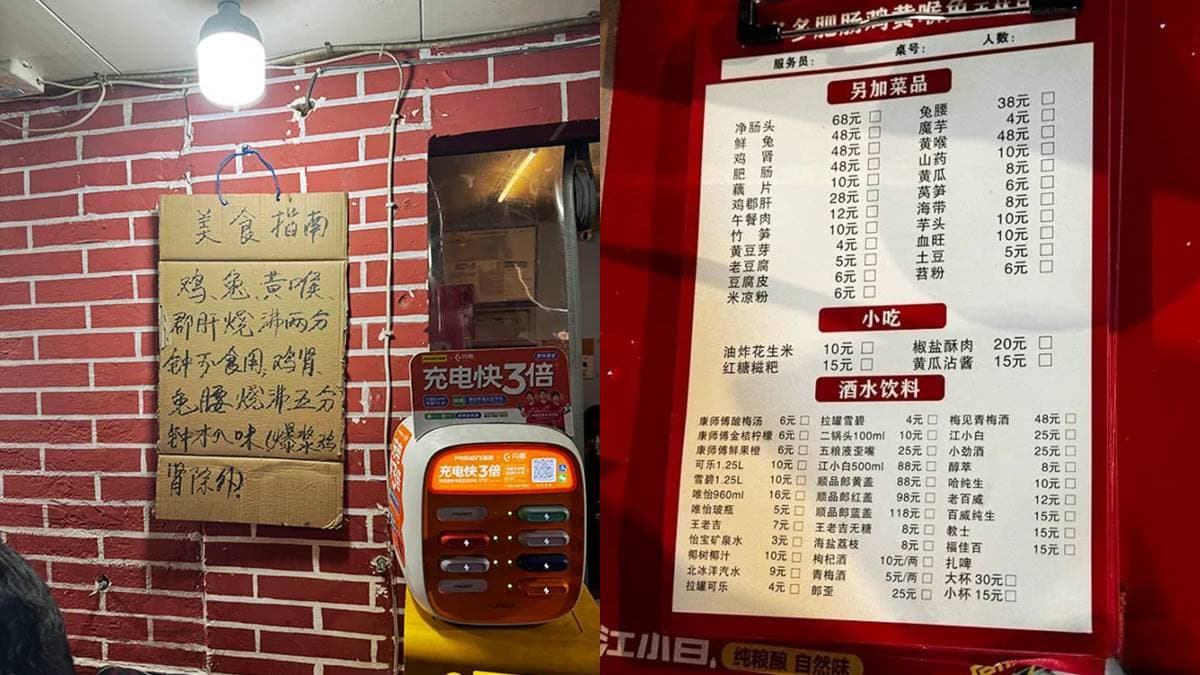 美食指南
鸡、兔、黄喉、
郡肝烧沸两分
钟可食用,鸡肾、
兔腰烧沸五分
钟才入味(爆浆鸡
肾除外)
充电快3倍
PISEN
充电快3倍
多肥肠鸡黄喉鱼
服务员: 桌号: 人数:
另加菜品
净肠头 68元 兔腰 38元
鲜兔 48元 魔芋 4元
鸡肾 48元 黄喉 48元
肥肠 48元 山药 10元
藕片 10元 黄瓜 8元
鸡郡肝 28元 莴笋 6元
午餐肉 12元 海带 8元
竹笋 10元 芋头 10元
黄豆芽 4元 血旺 10元
老豆腐 5元 土豆 5元
豆腐皮 6元 苕粉 6元
米凉粉 6元
小吃
油炸花生米 10元 椒盐酥肉 20元
红糖糍粑 15元 黄瓜沾酱 15元
酒水饮料
康师傅酸梅汤 6元 拉罐雪碧 4元 梅见青梅酒 48元
康师傅金桔柠檬 6元 二锅头100ml 10元 江小白 25元
康师傅鲜果橙 6元 五粮液歪嘴 25元 小劲酒 25元
可乐1.25L 10元 江小白500ml 88元 醇萃 8元
雪碧1.25L 10元 顺品郎黄盖 88元 哈纯生 10元
唯怡960ml 16元 顺品郎红盖 98元 老百威 12元
唯怡玻瓶 5元 顺品郎蓝盖 118元 百威纯生 15元
王老吉 7元 王老吉无糖 8元 教士 15元
怡宝矿泉水 3元 海盐荔枝 8元 福佳百 15元
椰树椰汁 10元 枸杞酒 10元/两 扎啤
北冰洋汽水 9元 青梅酒 5元/两 大杯 30元
拉罐可乐 4元 郎歪 25元 小杯 15元
江小白,
纯粮酿 自然味